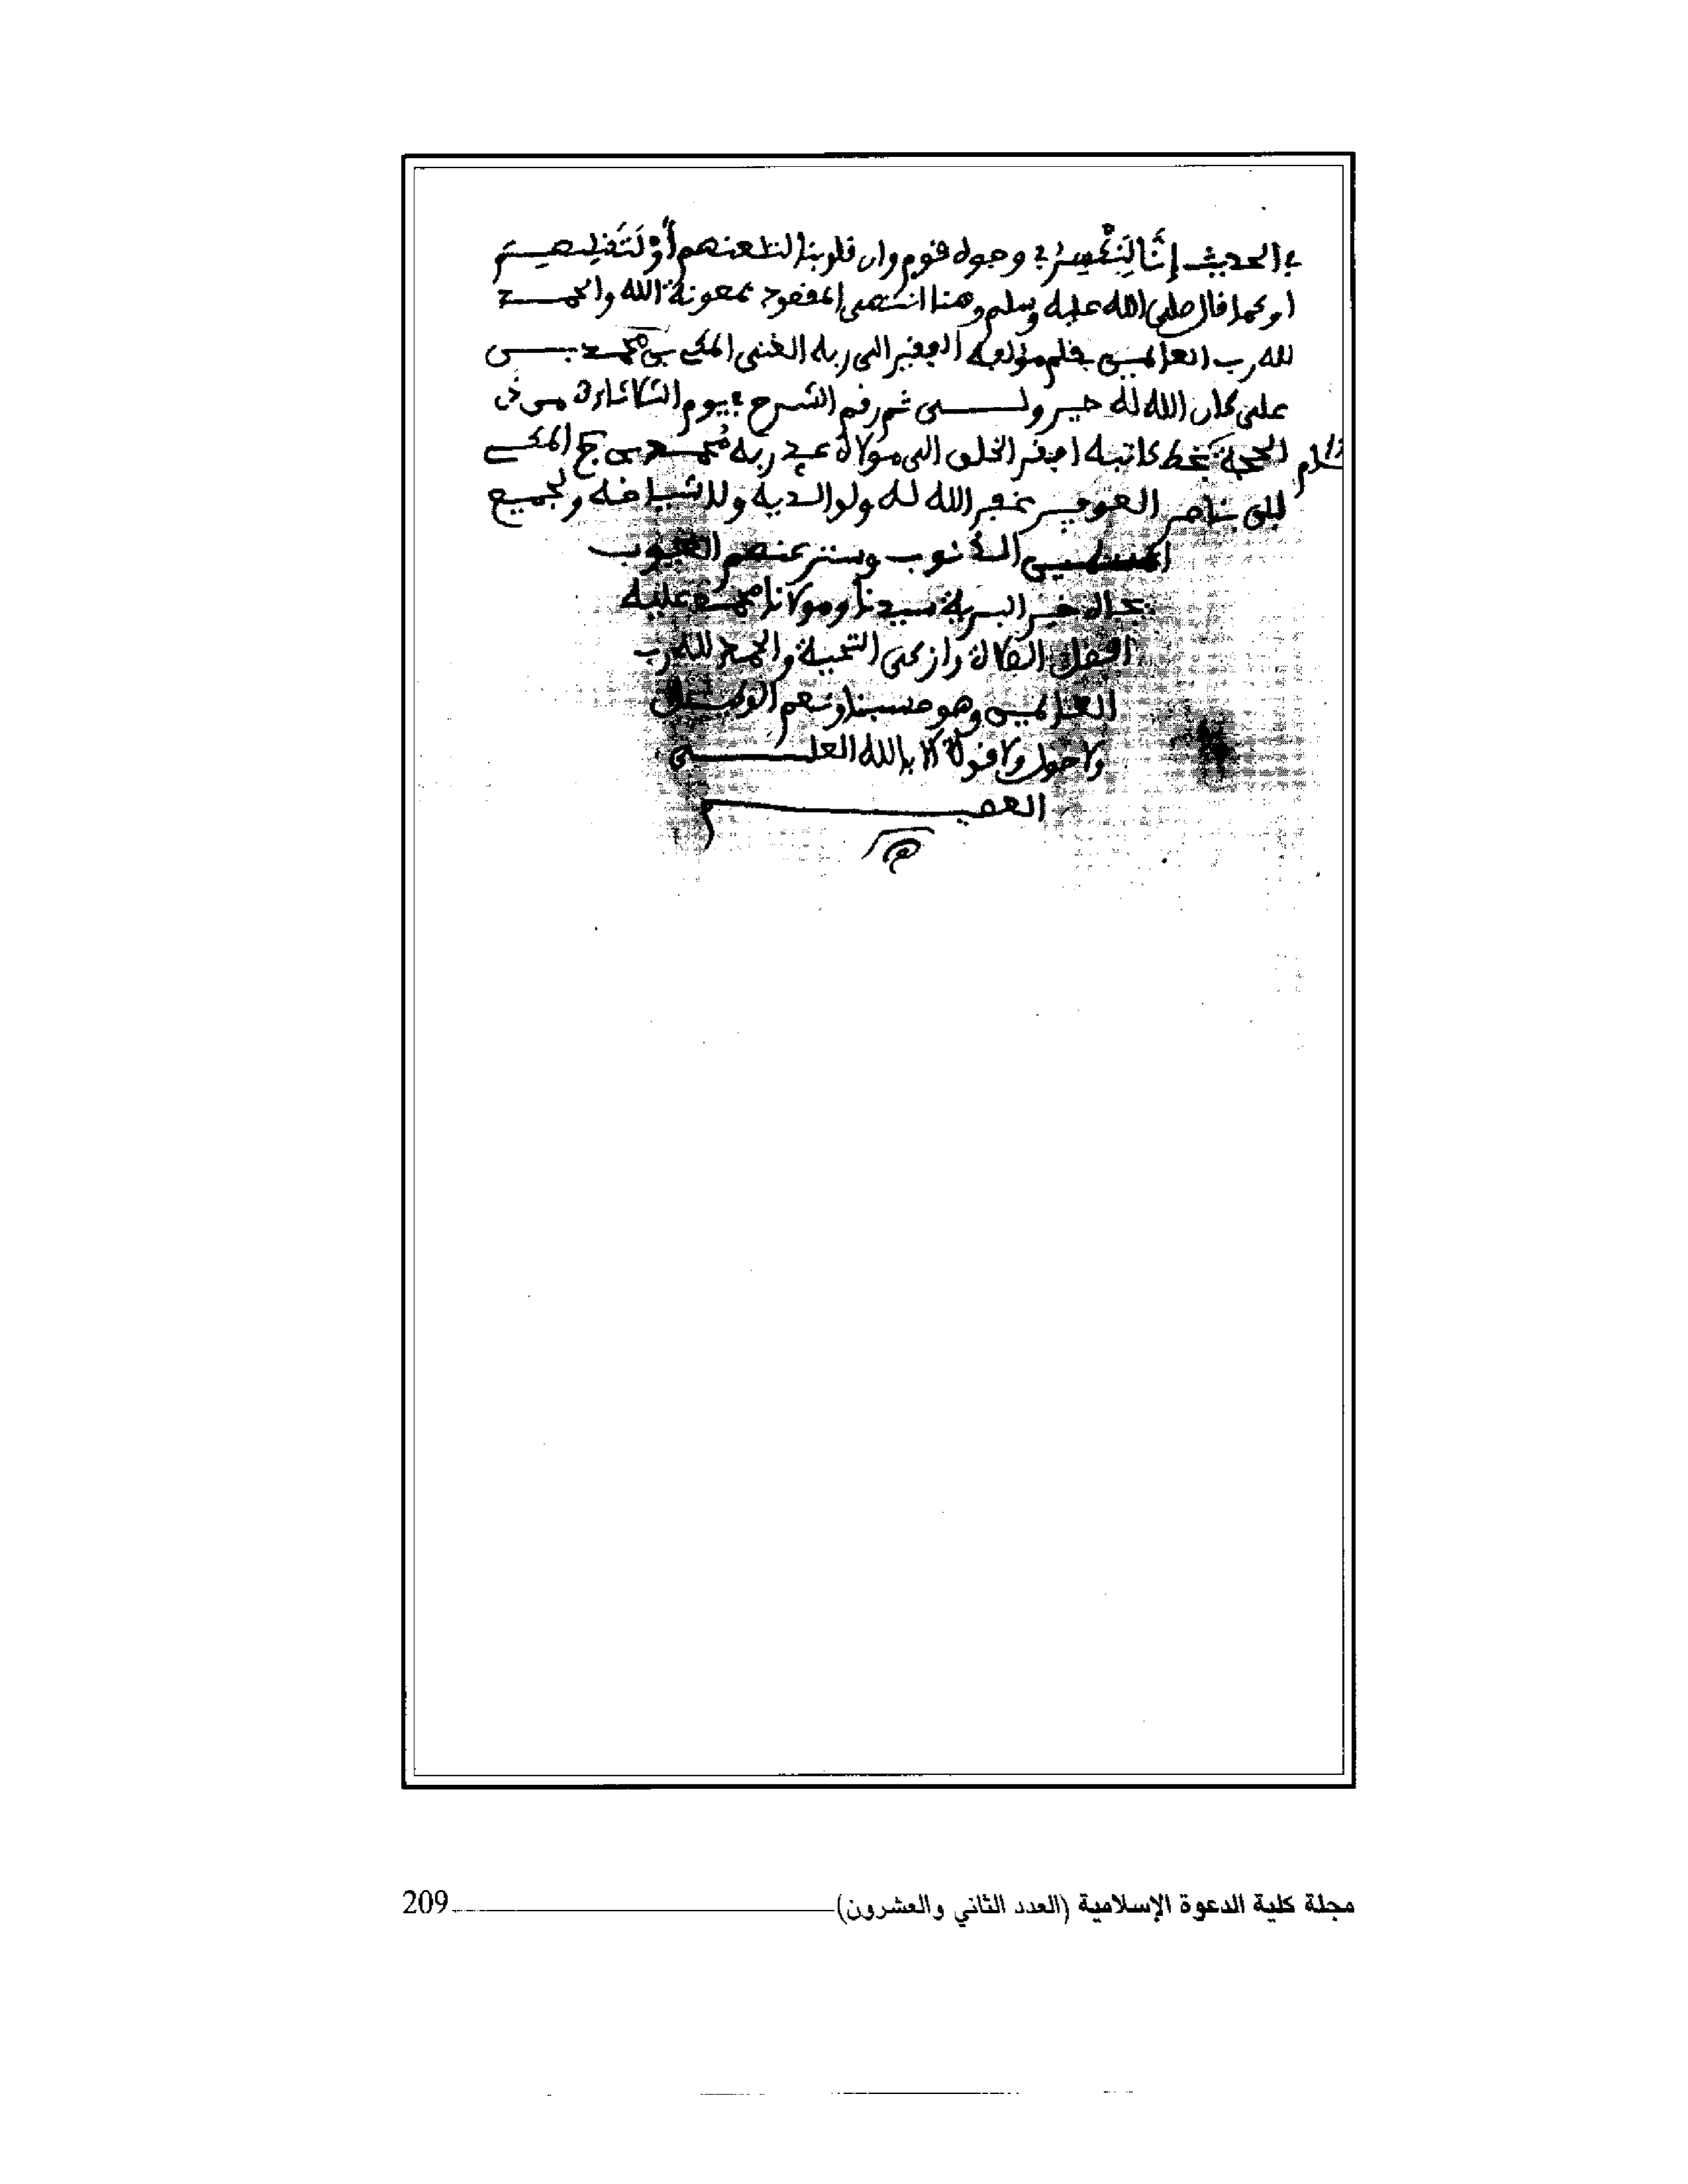 في الحديث إنا لنكشر في وجوه قوم وان قلوبنا لتلعنهم أو لتقليهم
او كما قال صلى الله عليه وسلم وهنا انتهى المقصود بمعونة الله والحمد
لله رب العالمين بقلم مؤلفه الفقير الى ربه الغني المكي بن محمد بن
علي كان الله له خير ولي تم رقم الشرح في يوم الثلاثاء من ذي
الحجة بخط كاتبه افقر الخلق الى مولاه عبد ربه محمد بن المكي
بن ناصر غفر الله له ولوالديه ولاشياخه ولجميع
المسلمين الذنوب وستر عنهم العيوب
بجاه خير البرية سيدنا ومولانا محمد عليه
افضل الصلاة وازكى التحية والحمد لله رب
العالمين وهو حسبنا ونعم الوكيل
ولا حول ولا قوة الا بالله العلي
العظيم
مجلة كلية الدعوة الإسلامية (العدد الثاني والعشرون) 209